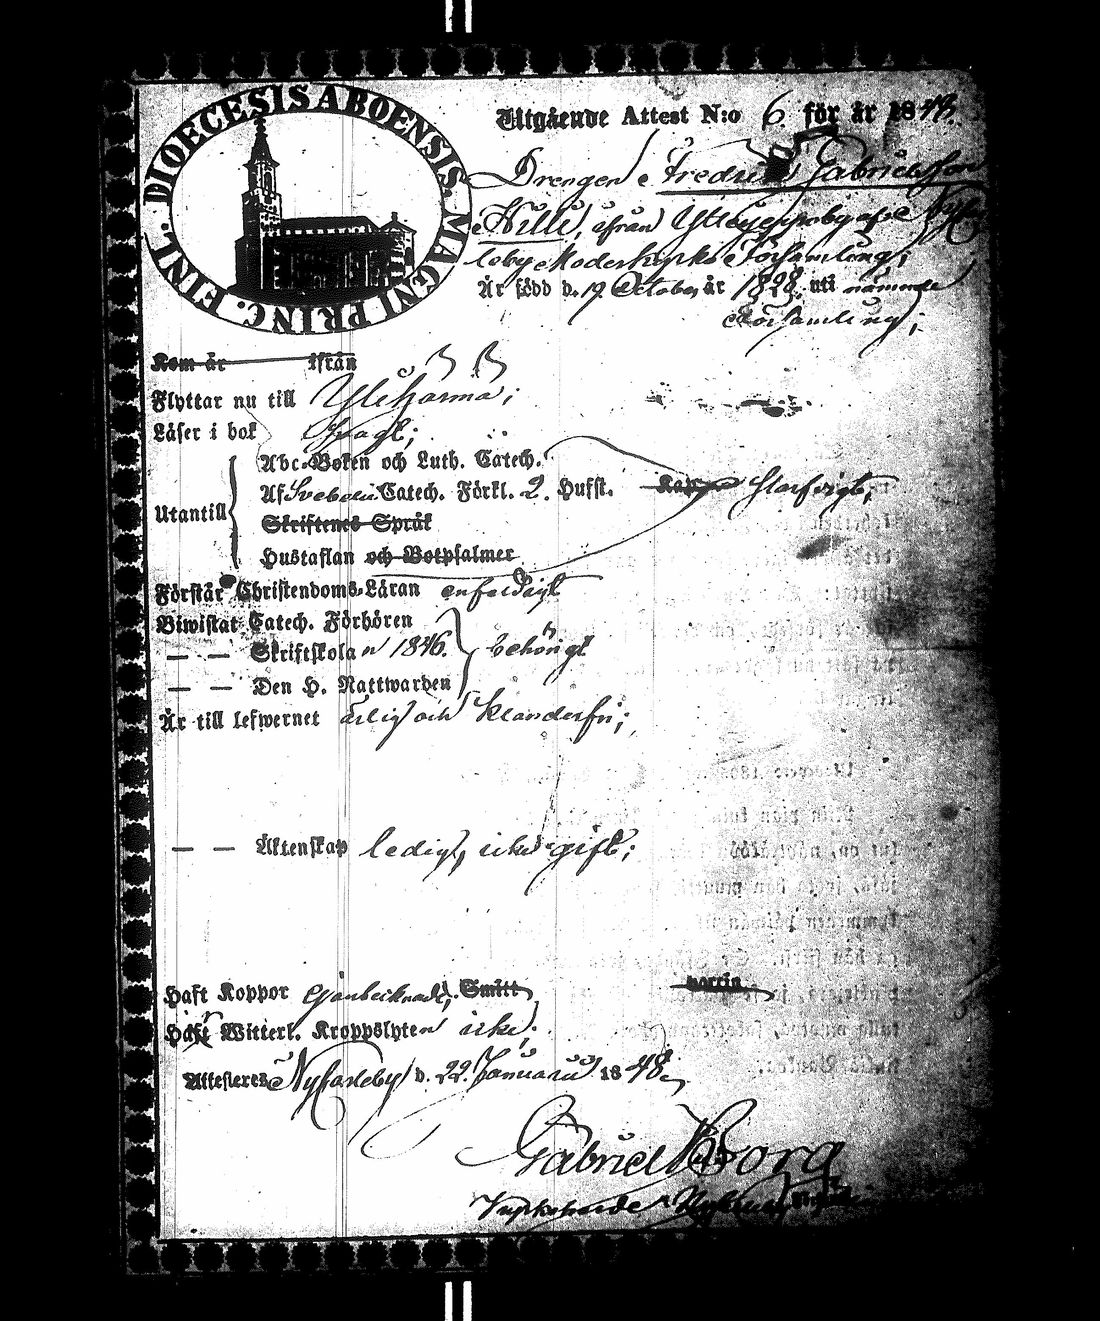 DIOECESIS ABOENSIS. MAGNI PRINC. FINL.
Utgående Attest N:o 6 för år 1848.
Drengen Fredrik Gabrielsson
Hille, ifrån Ytterjeppo by af Nykar
leby Moderkyrko Församling;
Är född d. 19 October år 1828, uti nämnde
Församling;
Kom år ifrån
Flyttar nu till Ylihärmä;
Läser i bok
Abc-Boken och Luth. Catech.
Utantill Af Svebelii Catech. Förkl. 2. Hufst.
Skriftenes Språk
Hustaflan och Botpsalmer
Förstår Christendoms-Läran enfaldigt
Biwistat Catech. Förhören
— — Skriftskolan 1846. behörigt
— — Den H. Nattwarden
Är till lefwernet ärlig och klanderfri;
— — Äktenskap ledig, icke gift;
Haft Koppor Smitt
Haft Witterl. Kroppslyten icke.
Attesteres Nykarleby d. 22 Januarii 1848.
Gabriel Borg